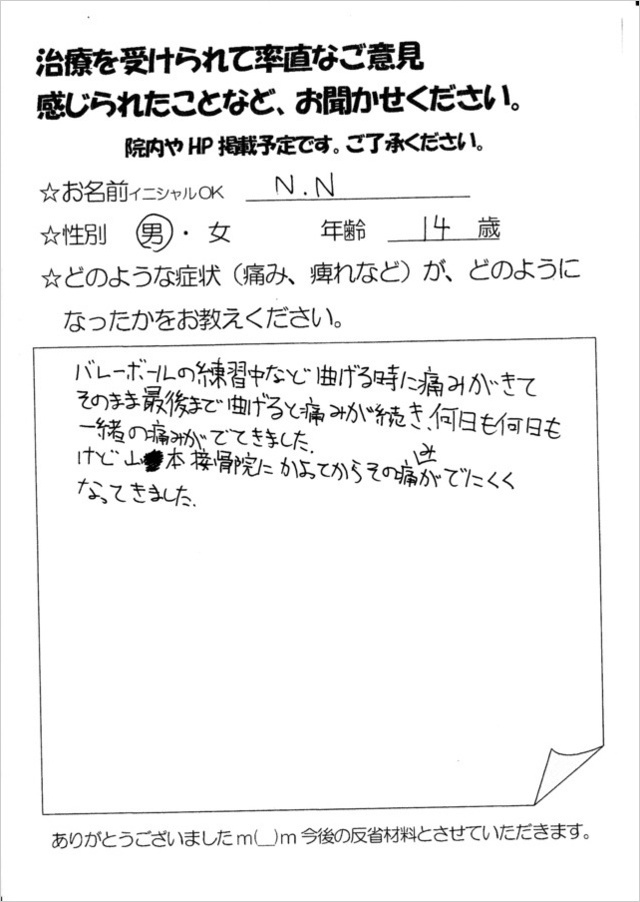 治療を受けられて率直なご意見
感じられたことなど、お聞かせください。
院内や HP 掲載予定です。ご了承ください。
☆お名前イニシャルOK N.N
☆性別 男・女 年齢 14 歳
☆どのような症状（痛み、痺れなど）が、どのように
なったかをお教えください。
バレーボールの練習中など曲げる時に痛みがきて
そのまま最後まで曲げると痛みが続き、何日も何日も
一緒の痛みがでてきました。
けど山本接骨院にかよってからその痛みがでにくく
なってきました。
ありがとうございましたm(__)m今後の反省材料とさせていただきます。